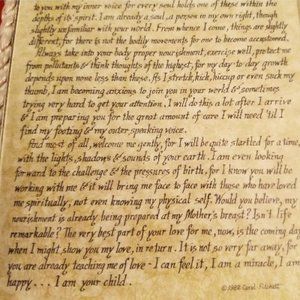 to you with my inner voice for every soul holds one of these within the
depths of its spirit. I am already a soul, a person in my own right, though
slightly unfamiliar with your world. From whence I come, things are slightly
different, for there is not the bodily movements for me to become accustomed.
Always take into your body proper nourishment, exercise well, protect me
from pollutants & think thoughts of the highest, for my day to day growth
depends upon none less than those. As I stretch, kick, hiccup or even suck my
thumb, I am becoming anxious to join you in your world & sometimes
trying very hard to get your attention. I will do this a lot after I arrive
& I am preparing you for the great amount of care I will need 'til I
find my footing & my outer, speaking voice.
And most of all, welcome me gently, for I will be quite startled for a time,
with the lights, shadows & sounds of your earth. I am even looking
forward to the challenge & the pressures of birth, for I know you will be
working with me & it will bring me face to face with those who have loved
me spiritually, not even knowing my physical self. Would you believe, my
nourishment is already being prepared at my Mother's breast? Isn't life
remarkable? The very best part of your love for me, now, is the coming day
when I might show you my love, in return. It is not so very far away, for
you are already teaching me of love - I can feel it, I am a miracle, I am
happy . . . I am your child.
©1982 Carol